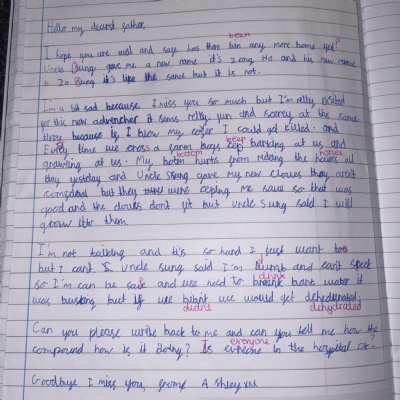 Hello my dearest father,
been
I hope you are well and says has thre bin any more boms yet?
Uncle Sung gave me a new name it's Zong Ho and his new name
is Zo Sung it's like the same but it is not.
I'm a bit sad because I miss you so much but I'm relly exited
for this new advencher it sems relly fun and scarey at the same
time because if I blow my cover I could get killed. and
Every time we cross a farm dogs keep barking at us and
growling at us. My bottom hurts from riding the horses all
day yestday and Uncle Sung gave my new cloves they arn't
but they were me save so that was
good and the clovs don't fit but Uncle Sung said I will
grow into them.
I'm not talking and it's so hard I just want to
but I cant. Uncle Sung said I'm dumb and can't speck
so I'm can be safe and we had to drink water it
was but if we didnt we would get
didnt dehydrated
Can you please write back to me and can you tell me how the
compound how is it doing? Is everyone in the hospital ok?
Goodbye I miss you, from Ashley xxx